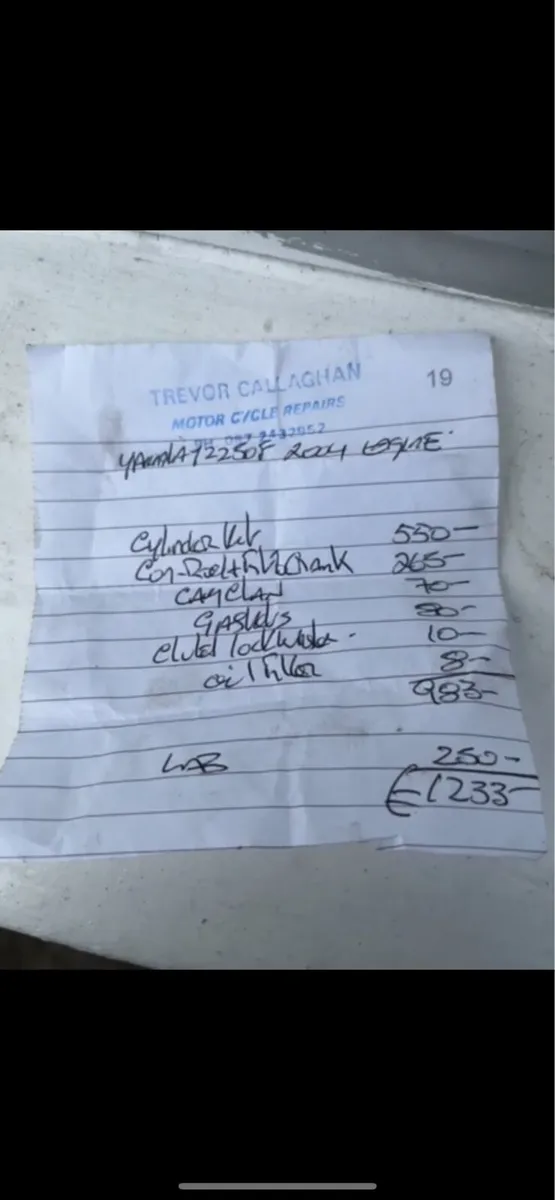 TREVOR CALLAGHAN 19
MOTOR CYCLE REPAIRS
PH 087 2432952
YAMAHA YZ250F 2024 ENGINE.
Cylinder Kit 550-
Con-Rod + Fit to Crank 265-
CAMCHAIN 70-
GASKETS 80-
Clutch lock washer. 10-
oil filter 8-
983-
LAB 250-
€1233-